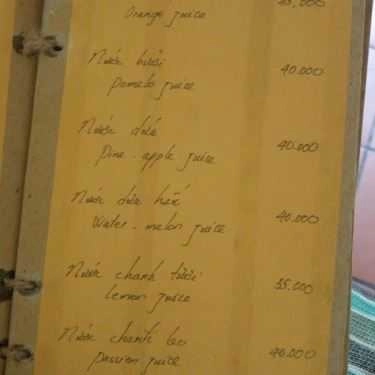 Orange juice
Nước bưởi 40.000
Pomelo juice
Nước dứa
Pine-apple juice 40.000
Nước dưa hấu
Water-melon juice 40.000
Nước chanh tươi
Lemon juice 35.000
Nước chanh leo
Passion juice 40.000